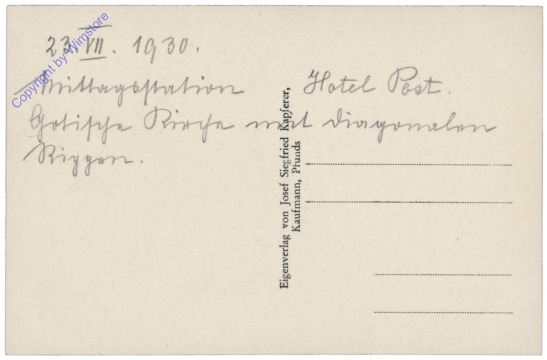 23. VII. 1930.
Mittagsstation Hotel Post.
Gotische Kirche mit diagonalen
Rippen.
Eigenverlag von Josef Siegfried Kapferer,
Kaufmann, Pfunds
Copyright by Wimstore